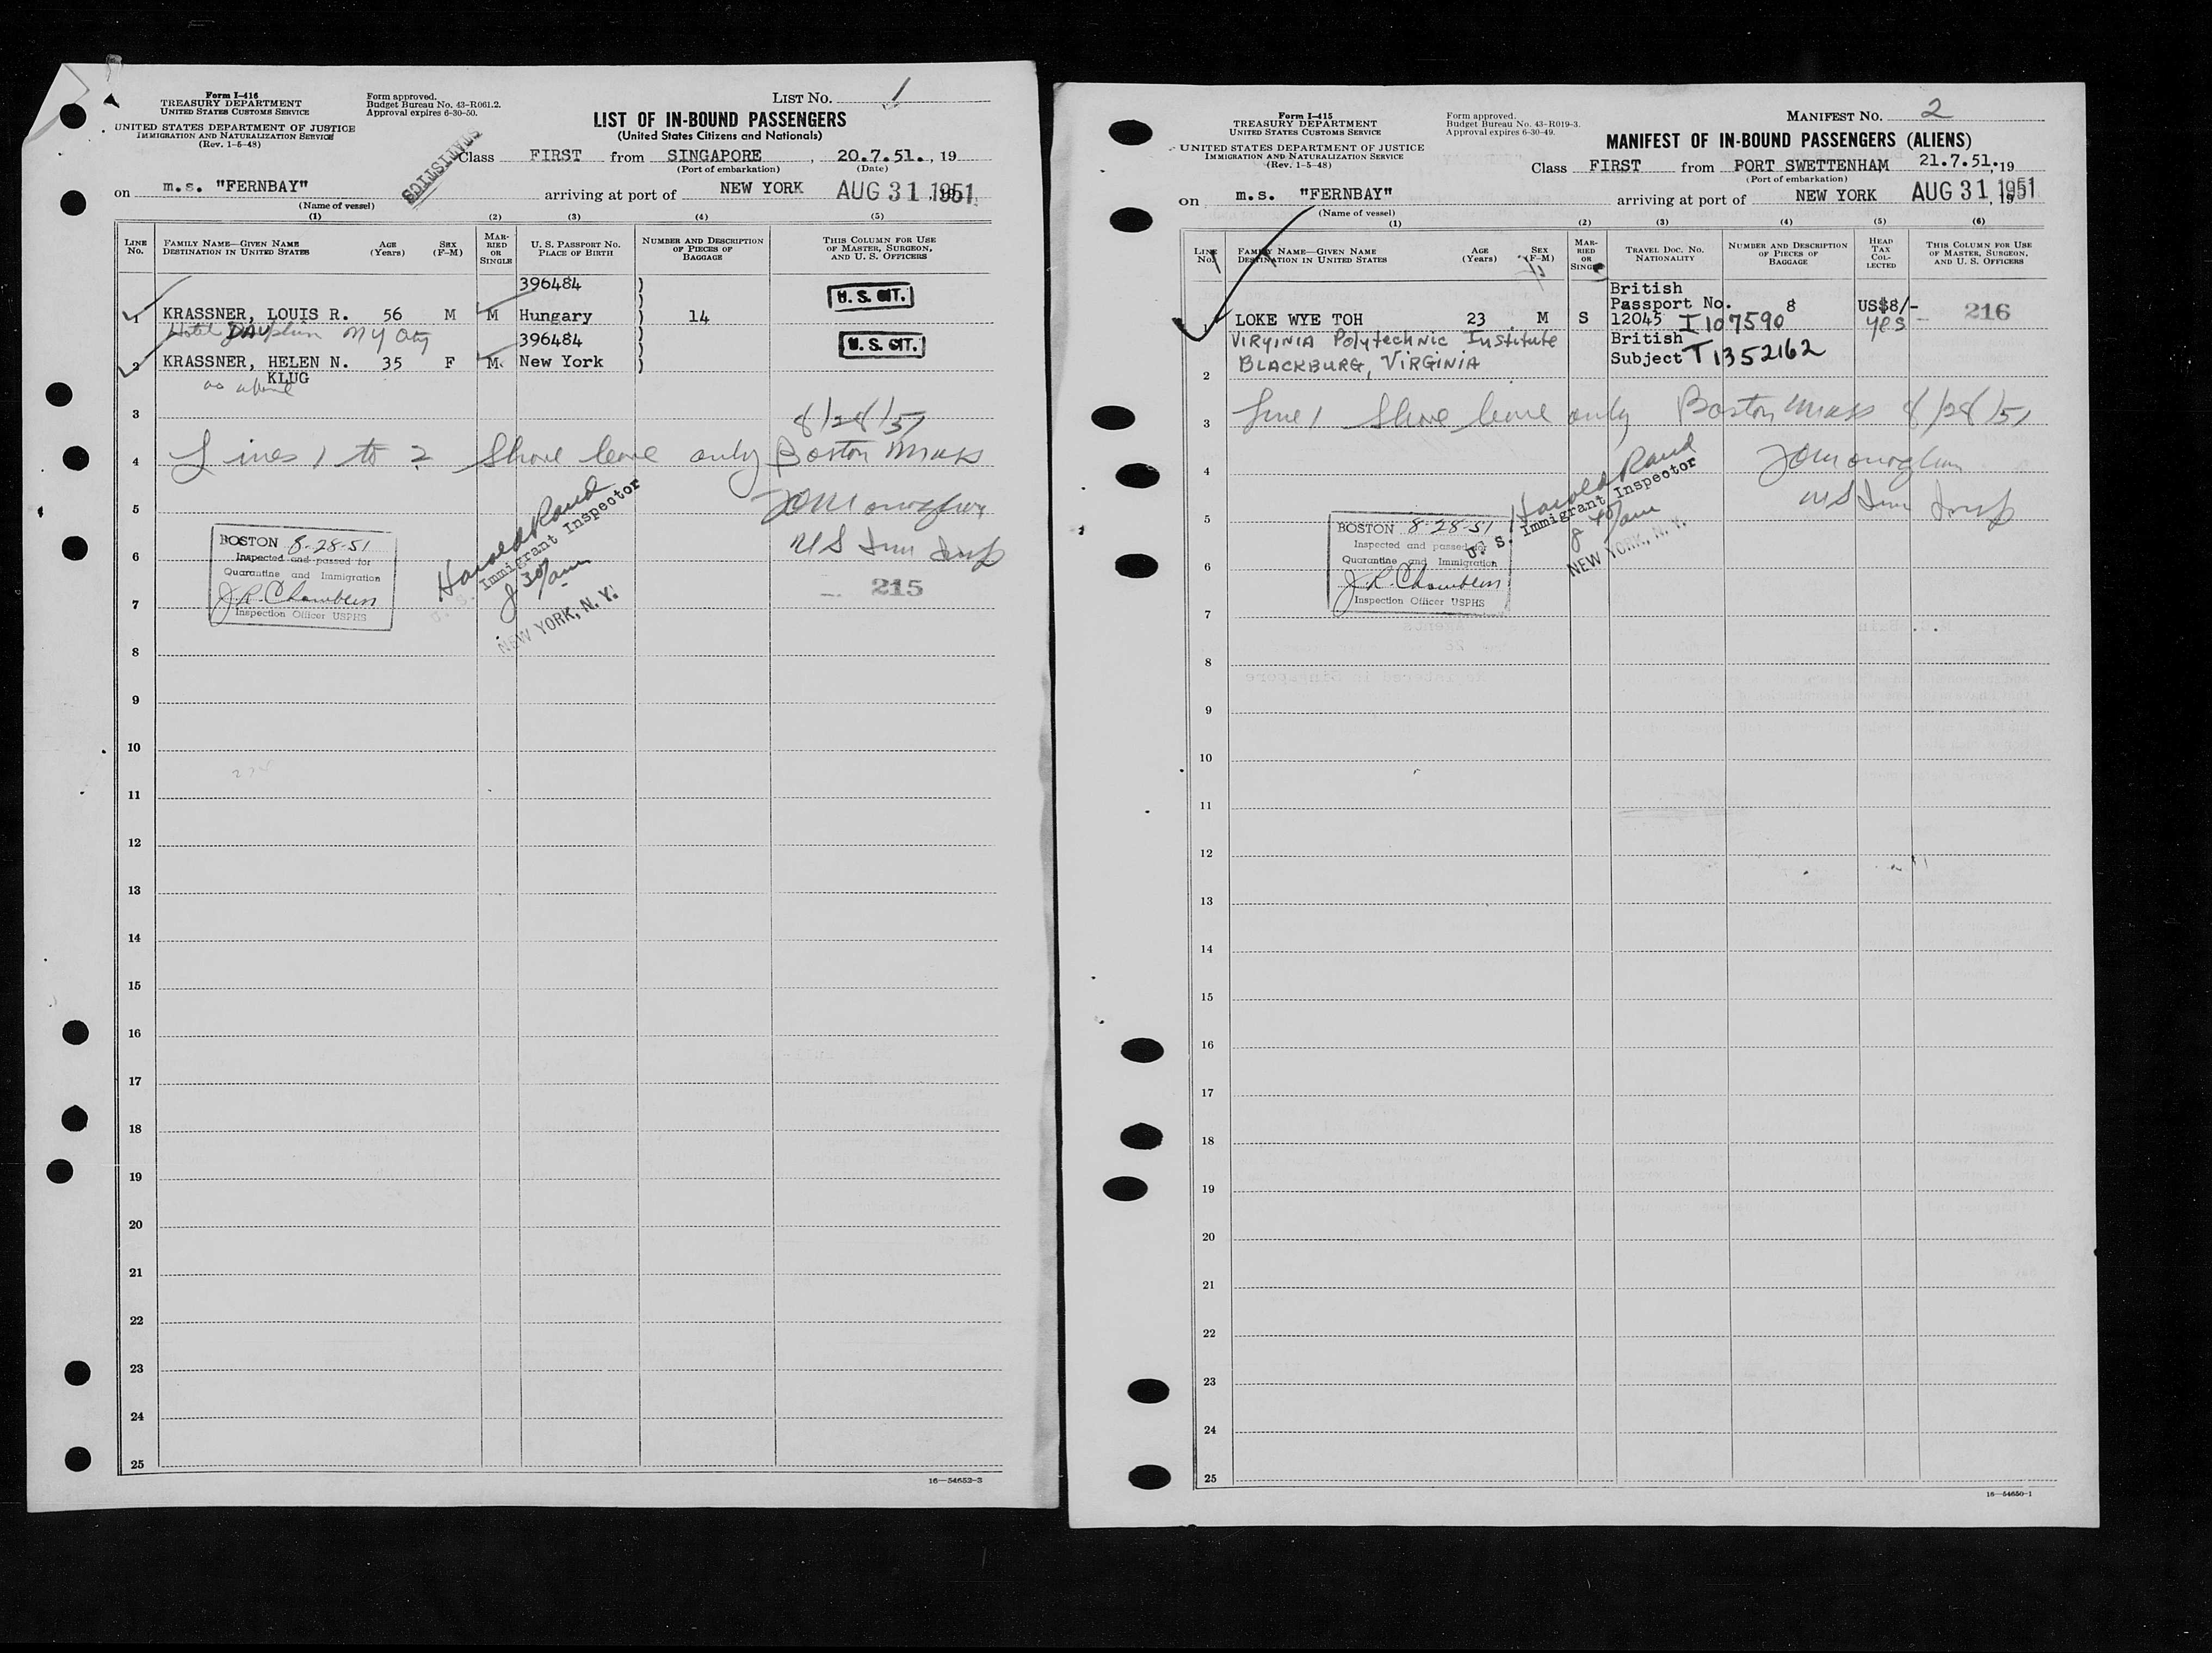 Form I-416
TREASURY DEPARTMENT
UNITED STATES CUSTOMS SERVICE
UNITED STATES DEPARTMENT OF JUSTICE
IMMIGRATION AND NATURALIZATION SERVICE
(Rev. 1-5-48)
Form approved.
Budget Bureau No. 43-R061.2.
Approval expires 6-30-50.
STATISTICS
LIST NO. 1
LIST OF IN-BOUND PASSENGERS
(United States Citizens and Nationals)
Class FIRST from SINGAPORE, 20.7.51., 19
(Port of embarkation) (Date)
on m.s. "FERNBAY" arriving at port of NEW YORK AUG 31 1951
(Name of vessel)
(1) (2) (3) (4) (5)
LINE No.
FAMILY NAME—GIVEN NAME
DESTINATION IN UNITED STATES
AGE (Years)
SEX (F-M)
MARRIED OR SINGLE
U. S. PASSPORT NO.
PLACE OF BIRTH
NUMBER AND DESCRIPTION OF PIECES OF BAGGAGE
THIS COLUMN FOR USE OF MASTER, SURGEON, AND U. S. OFFICERS
396484
1 KRASSNER, LOUIS R. 56 M M Hungary 14 U. S. CIT.
Hotel Dauphin N Y City
396484
2 KRASSNER, HELEN N. 35 F M New York U. S. CIT.
KLUG
as above
3 8/28/51
4 Lines 1 to 2 Shore leave only Boston Mass
5
6 U S Imm Insp
7 215
BOSTON 8-28-51
Inspected and passed for
Quarantine and Immigration
J.R. Chamblin
Inspection Officer USPHS
Harold Rand
U. S. Immigrant Inspector
8 30/am
NEW YORK, N. Y.
8
9
10
11
12
13
14
15
16
17
18
19
20
21
22
23
24
25
16—54652-3
Form I-415
TREASURY DEPARTMENT
UNITED STATES CUSTOMS SERVICE
UNITED STATES DEPARTMENT OF JUSTICE
IMMIGRATION AND NATURALIZATION SERVICE
(Rev. 1-5-48)
Form approved.
Budget Bureau No. 43-R019-3.
Approval expires 6-30-49.
MANIFEST NO. 2
MANIFEST OF IN-BOUND PASSENGERS (ALIENS)
Class FIRST from PORT SWETTENHAM 21.7.51., 19
(Port of embarkation)
on m.s. "FERNBAY" arriving at port of NEW YORK AUG 31, 1951
(Name of vessel)
(1) (2) (3) (4) (5) (6)
LINE No.
FAMILY NAME—GIVEN NAME
DESTINATION IN UNITED STATES
AGE (Years)
SEX (F-M)
MARRIED OR SINGLE
TRAVEL DOC. NO.
NATIONALITY
NUMBER AND DESCRIPTION OF PIECES OF BAGGAGE
HEAD TAX COLLECTED
THIS COLUMN FOR USE OF MASTER, SURGEON, AND U. S. OFFICERS
British
Passport No. 8 US$8/-
1 LOKE WYE TOH 23 M S 12045 I 107590 yes 216
VIRGINIA Polytechnic Institute British
BLACKBURG, VIRGINIA Subject T1352162
2
3 Line 1 Shore leave only Boston Mass 8/28/51
4
5 U S Imm Insp
BOSTON 8-28-51
Inspected and passed for
Quarantine and Immigration
J.R. Chamblin
Inspection Officer USPHS
Harold Rand
U. S. Immigrant Inspector
8 40/am
NEW YORK, N. Y.
6
7
8
9
10
11
12
13
14
15
16
17
18
19
20
21
22
23
24
25
16—54650-1